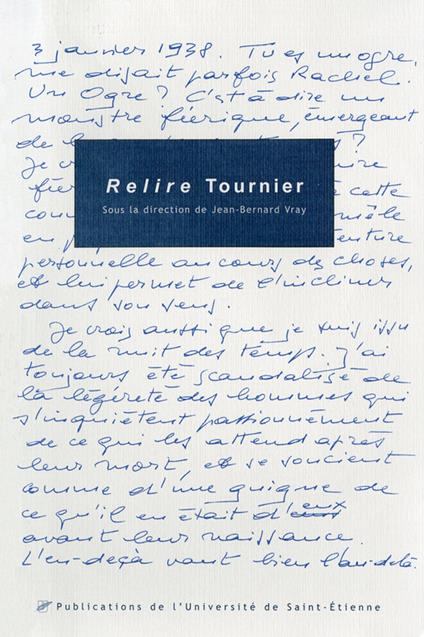 3 janvier 1938. Tu es un ogre,
me disait parfois Rachel.
Un Ogre ? C'est à dire un
monstre féerique, émergeant
de la
Je
Relire Tournier
Sous la direction de Jean-Bernard Vray
cette
mêle
en
personnelle au cours des choses,
et lui permet de l'incliner
dans son sens.
Je crois aussi que je suis issu
de la nuit des temps. J'ai
toujours été scandalisé de
la légèreté des hommes qui
s'inquiètent passionnément
de ce qui les attend après
leur mort, et se soucient
comme d'une guigne de
ce qu'il en était d'eux
avant leur naissance.
L'en-deçà vaut bien l'au-delà.
Publications de l'Université de Saint-Étienne